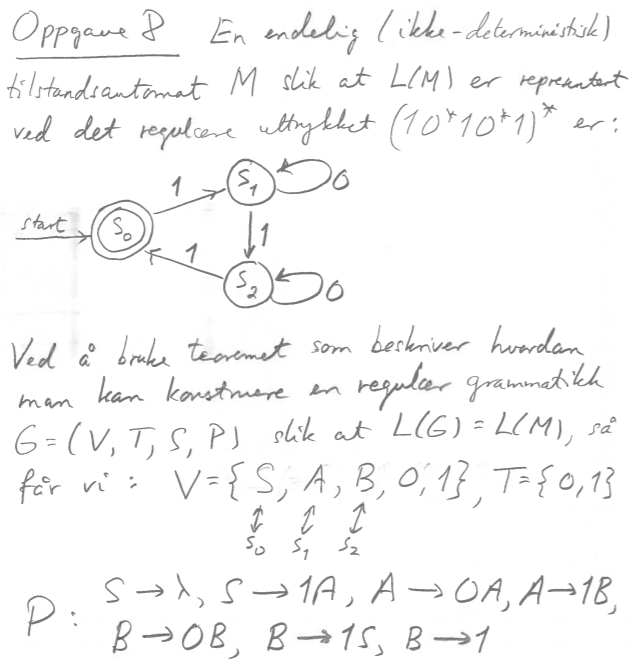 Oppgave 8 En endelig (ikke-deterministisk)
tilstandsautomat M slik at L(M) er representert
ved det regulære uttrykket (10*10*1)* er:
start S₀ 1 S₁ 0
1
1 S₂ 0
Ved å bruke teoremet som beskriver hvordan
man kan konstruere en regulær grammatikk
G=(V, T, S, P) slik at L(G)=L(M), så
får vi: V={S, A, B, 0, 1}, T={0,1}
↕ ↕ ↕
S₀ S₁ S₂
P: S→λ, S→1A, A→0A, A→1B,
B→0B, B→1S, B→1